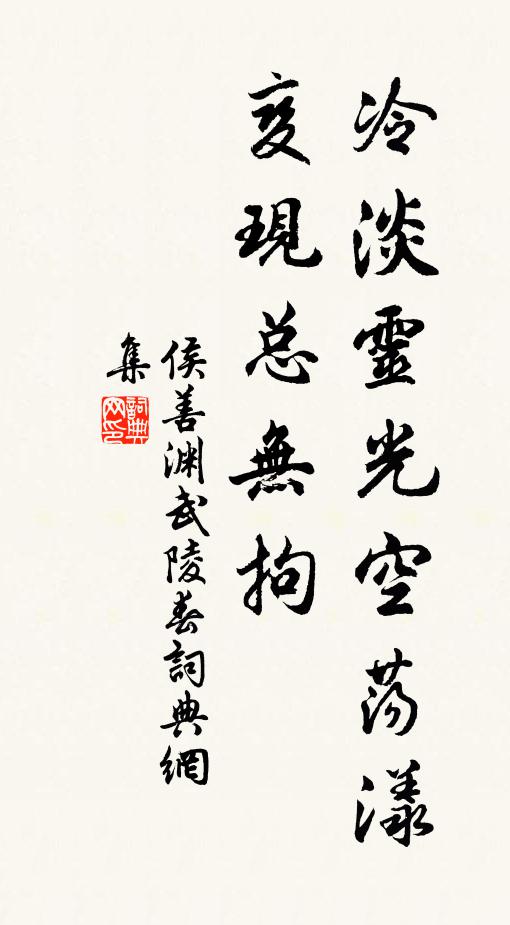 冷淡靈光空蕩漾
变現总無拘
侯善渊武陵春詞典網
集
詞典
网印